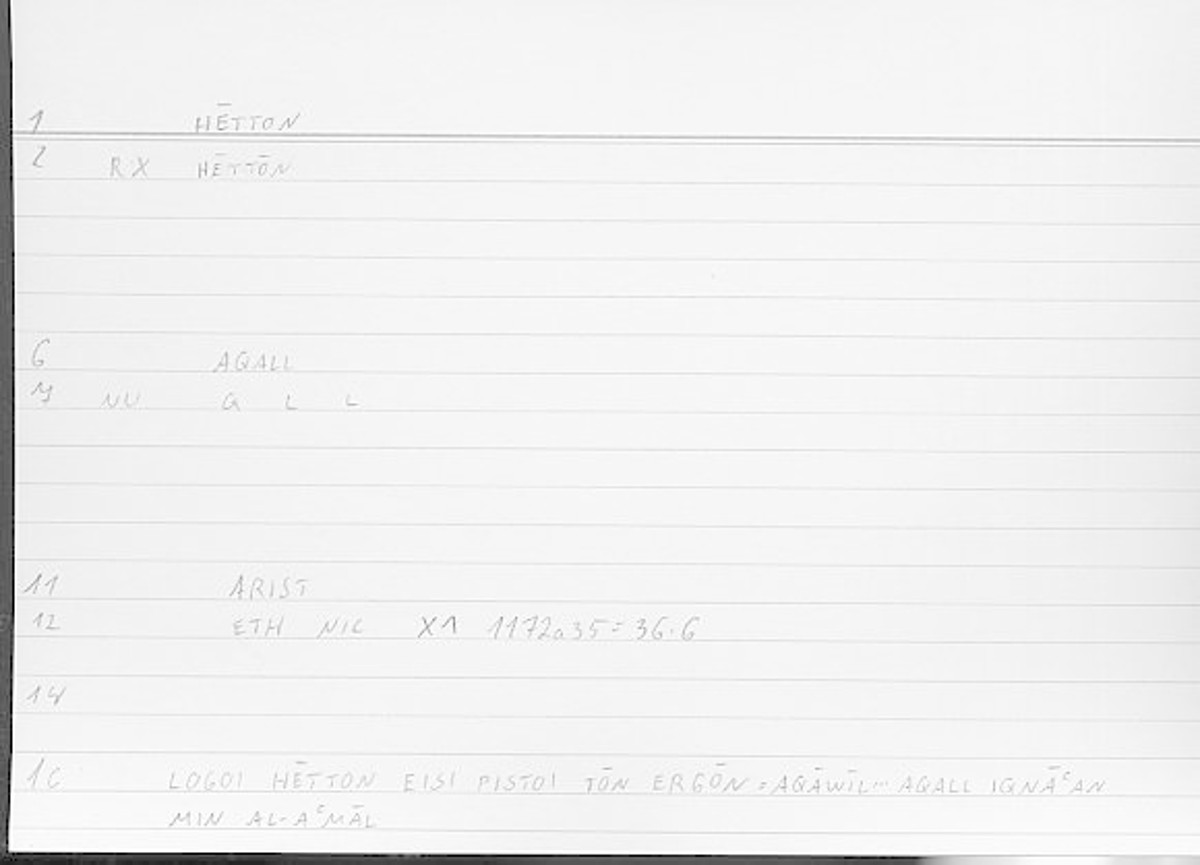 1 HĒTTON
2 RX HĒTTŌN
6 AQALL
7 NU Q L L
11 ARIST
12 ETH NIC X1 1172a35=36.6
14
15 LOGOI HĒTTON EISI PISTOI TŌN ERGŌN = AQĀWĪL... AQALL IQNĀʿAN
MIN AL-AʿMĀL